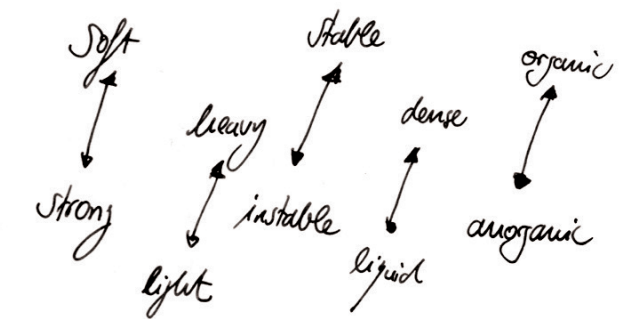 soft
strong
heavy
light
stable
instable
dense
liquid
organic
anorganic